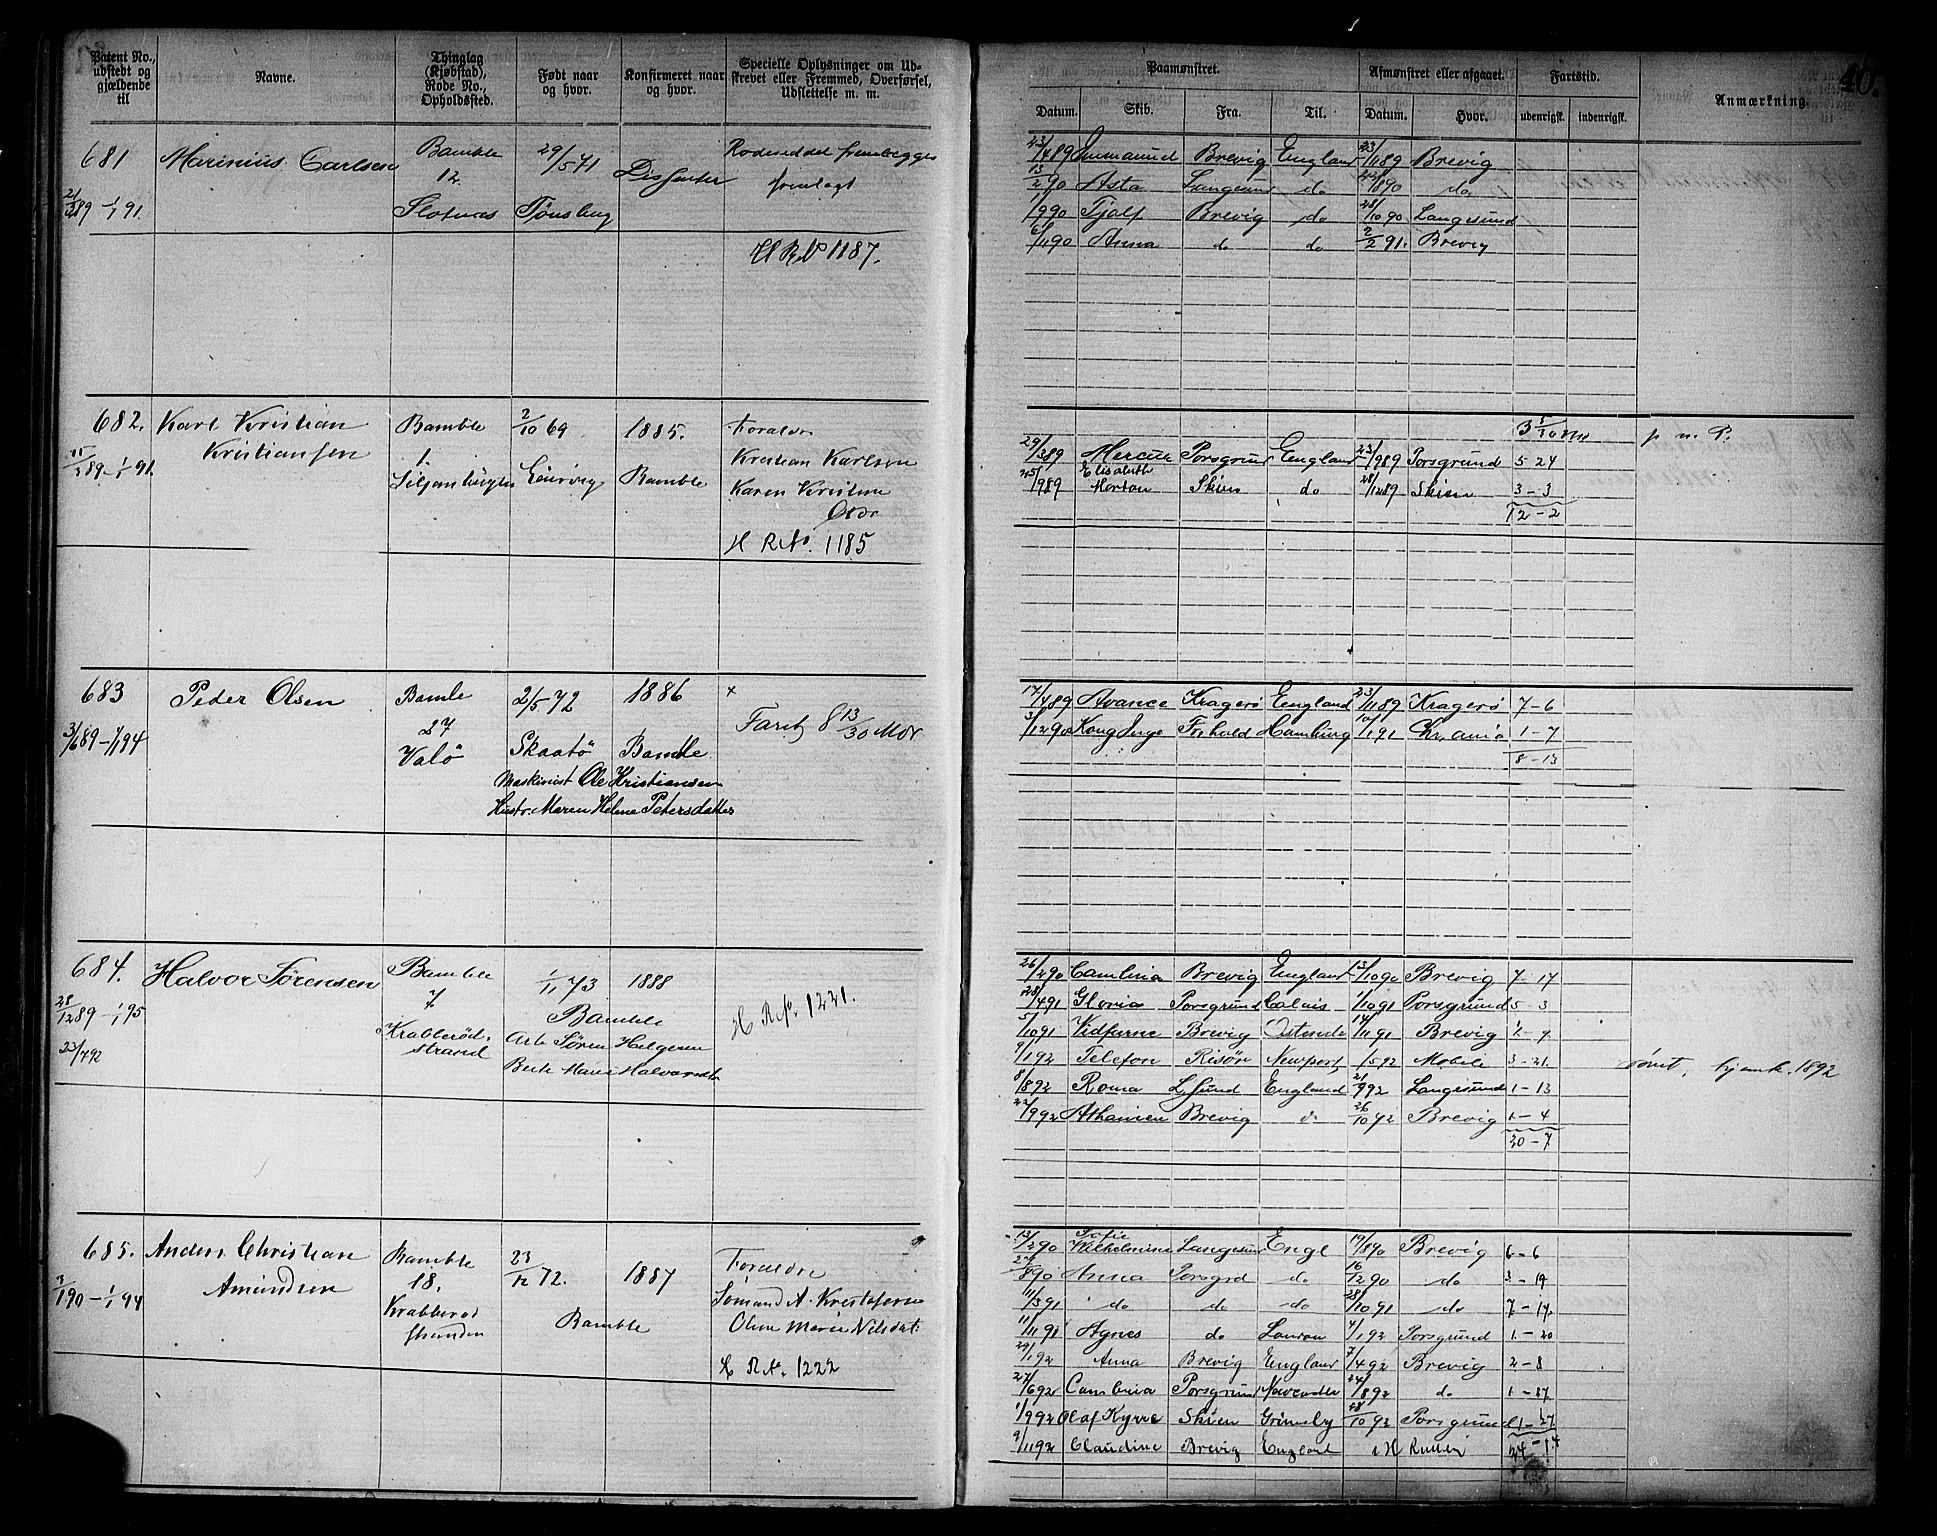 40.
Patent No., udstedt og gjældende til
Navne.
Thinglag (Kjøbstad), Rode No., Opholdssted.
Født naar og hvor.
Konfirmeret naar og hvor.
Specielle Oplysninger om Udskrevet eller Fremmed, Overførsel, Udslettelse m. m.
Paamønstret.
Afmønstret eller afgaaet.
Fartstid.
Anmærkning.
Datum. Skib. Fra. Til. Datum. Hvor. udenrigsk. indenrigsk.
681 Marinius Carlsen Bamble 29/5 71 Dissenter Rodeseddel frembegges
12. foreløgt
Tønsberg
H R No 1187.
Brevig England 23/11 89 Brevig
Asta Langesund do do
Tjalf Brevig do 28/10 90 Langesund
6/11 90 Anna do do 2/2 91. Brevig
682. Karl Kristian Bamble 2/10 69 1885. Foraldr
Kristiansen 1. Kristian Karlsen
89 – 1/1 91. Bamble Karen Kristine
H R No. 1185
p m P.
29/3 89 Mercur Porsgrund England 23/9 89 Porsgrund 5 – 24
Elisabeth
25/9 89 Horton Skien do 28/12 89 Skien 3 – 3
12 – 2
683 Peder Olsen Bamle 2/5 72 1886 x
27 Fart 8 13/30 Mdr
3/6 89 – 1/1 94 Valö Skaatö Bamle
Maskinist Ole Kristiansen
Hustr. Maren Helene Petersdatter
17/4 89 Avance Kragerø England 23/11 89 Kragerø 7 – 6
3/12 90 Kong Inge Hamburg 10/1 91 Kr.ania 1 – 7
8 – 13
684. Halvor Sørensen Bamble 1/11 73 1888
7
28/12 89 – 1/1 95 Krabberød- Bamble H R No. 1221.
strand Arb. Søren Helgesen
23/7 92 Berte Marie Halvorsdtr
26/2 90 Cambria Brevig England 13/10 90 Brevig 7 – 17
28/4 91 Gloria Porsgrund Calais 1/10 91 Porsgrund 5 – 3
5/10 91 Vidfarne Brevig Ostende 14/11 91 Brevig 1 – 9
9/1 92 Telefon Risör Newport 1/5 92 Mobile 3 – 21. rømt, hjemk. 1892
8/8 92 Roma L.sund England 21/9 92 Langesund 1 – 13
22/9 92 Athenien Brevig do 26/10 92 Brevig 1 – 4
20 – 7
685. Anders Christian Bamble 23/12 72. 1887 Foraldre
Amundsen 18. Sømand A. Kristofersen
3/1 90 – 1/1 94 Krabberød Bamble Oline Marie Nilsdat.
stranden H R No. 1222
Sofie
14/2 90 Wilhelmine Langesund Engl 19/8 90 Brevig 6 – 6
Anna Porsgrd do 16/12 90 do 3 – 19
11/3 91 do do do 28/10 91 do 7 – 17.
11/11 91 Agnes do London 4/1 92 Porsgrund 1 – 20
29/1 92 Anna Brevig England 7/4 92 Brevig 2 – 8
27/6 92 Cambria Porsgrund Newcastle 24/8 92 do 1 – 27
1/9 92 Olaf Kyrre Skien Grimsby 28/10 92 Porsgrund 1 – 27
9/11 92 Claudine Brevig England 24 – 14